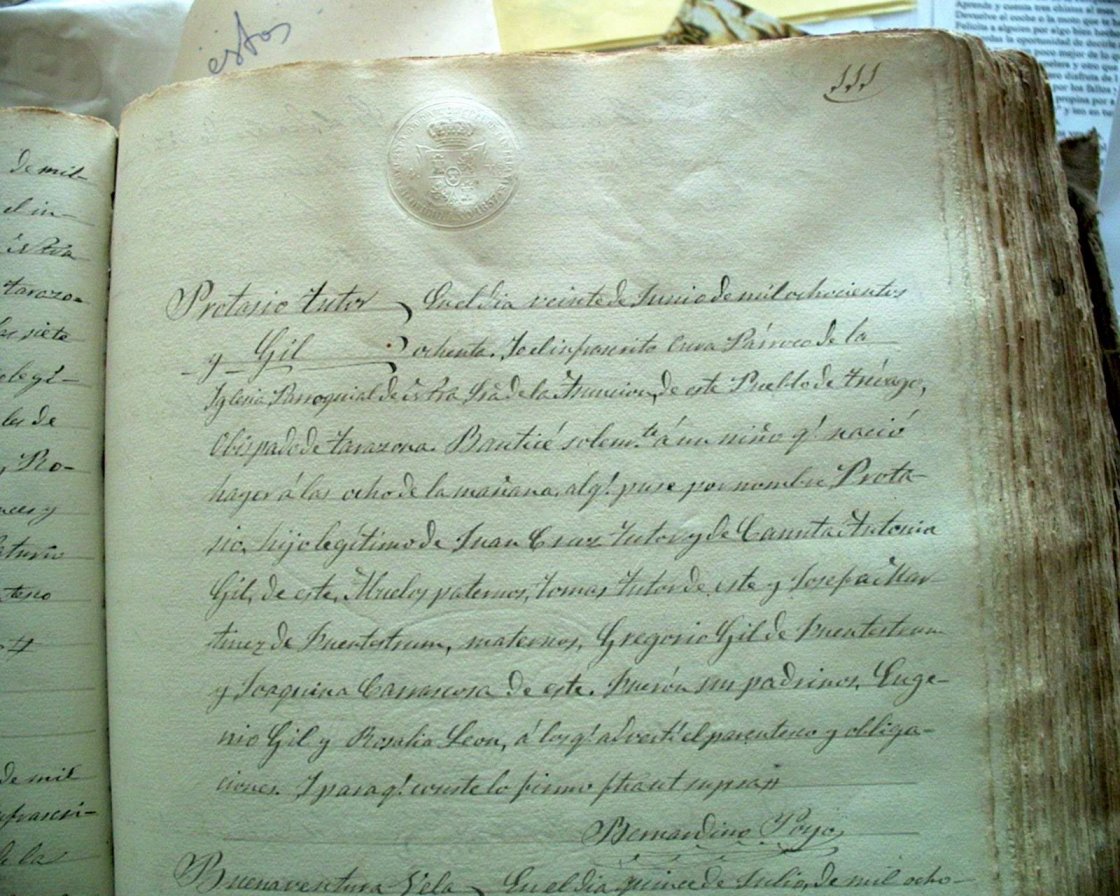 éstos
111
de mil
el in-
Ntra
tarazo-
las siete
legí-
los de
y Ro-
nces y
tesco
de mil
infrascri-
de la
Protasio tutor En el dia veinte de Junio de mil ochocientos
y Gil ochenta. Yo el infrascrito Cura Párroco de la
Iglesia Parroquial de Ntra Sra de la Asuncion, de este Pueblo de trévago,
Obispado de tarazona. Bauticé solemte á un niño q! nació
hayer á las ocho de la mañana, al q! puse por nombre Prota-
sio, hijo legítimo de Juan Cruz Tutor y de Canuta Antonia
Gil, de este, Abuelos paternos, tomas tutor de este y Josefa Mar-
tinez de Fuentestrun, maternos, Gregorio Gil de Fuentestrun
y Joaquina Carrascosa de este. Fuerón sus padrinos, Euge-
nio Gil y Rosalia Leon, á los q! advertí el parentesco y obliga-
ciones. Y para q! conste lo firmo fha ut supra
Bernardino
Buenaventura Vela En el dia quince de Julio, de mil ocho-